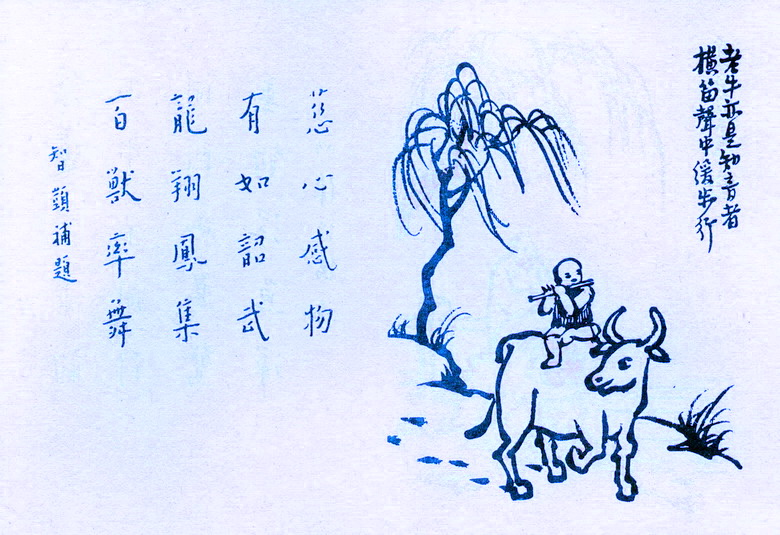 老牛亦是知音者
横笛聲中緩步行
慈心感物
有如韶武
龍翔鳳集
百獸率舞
智顗補題